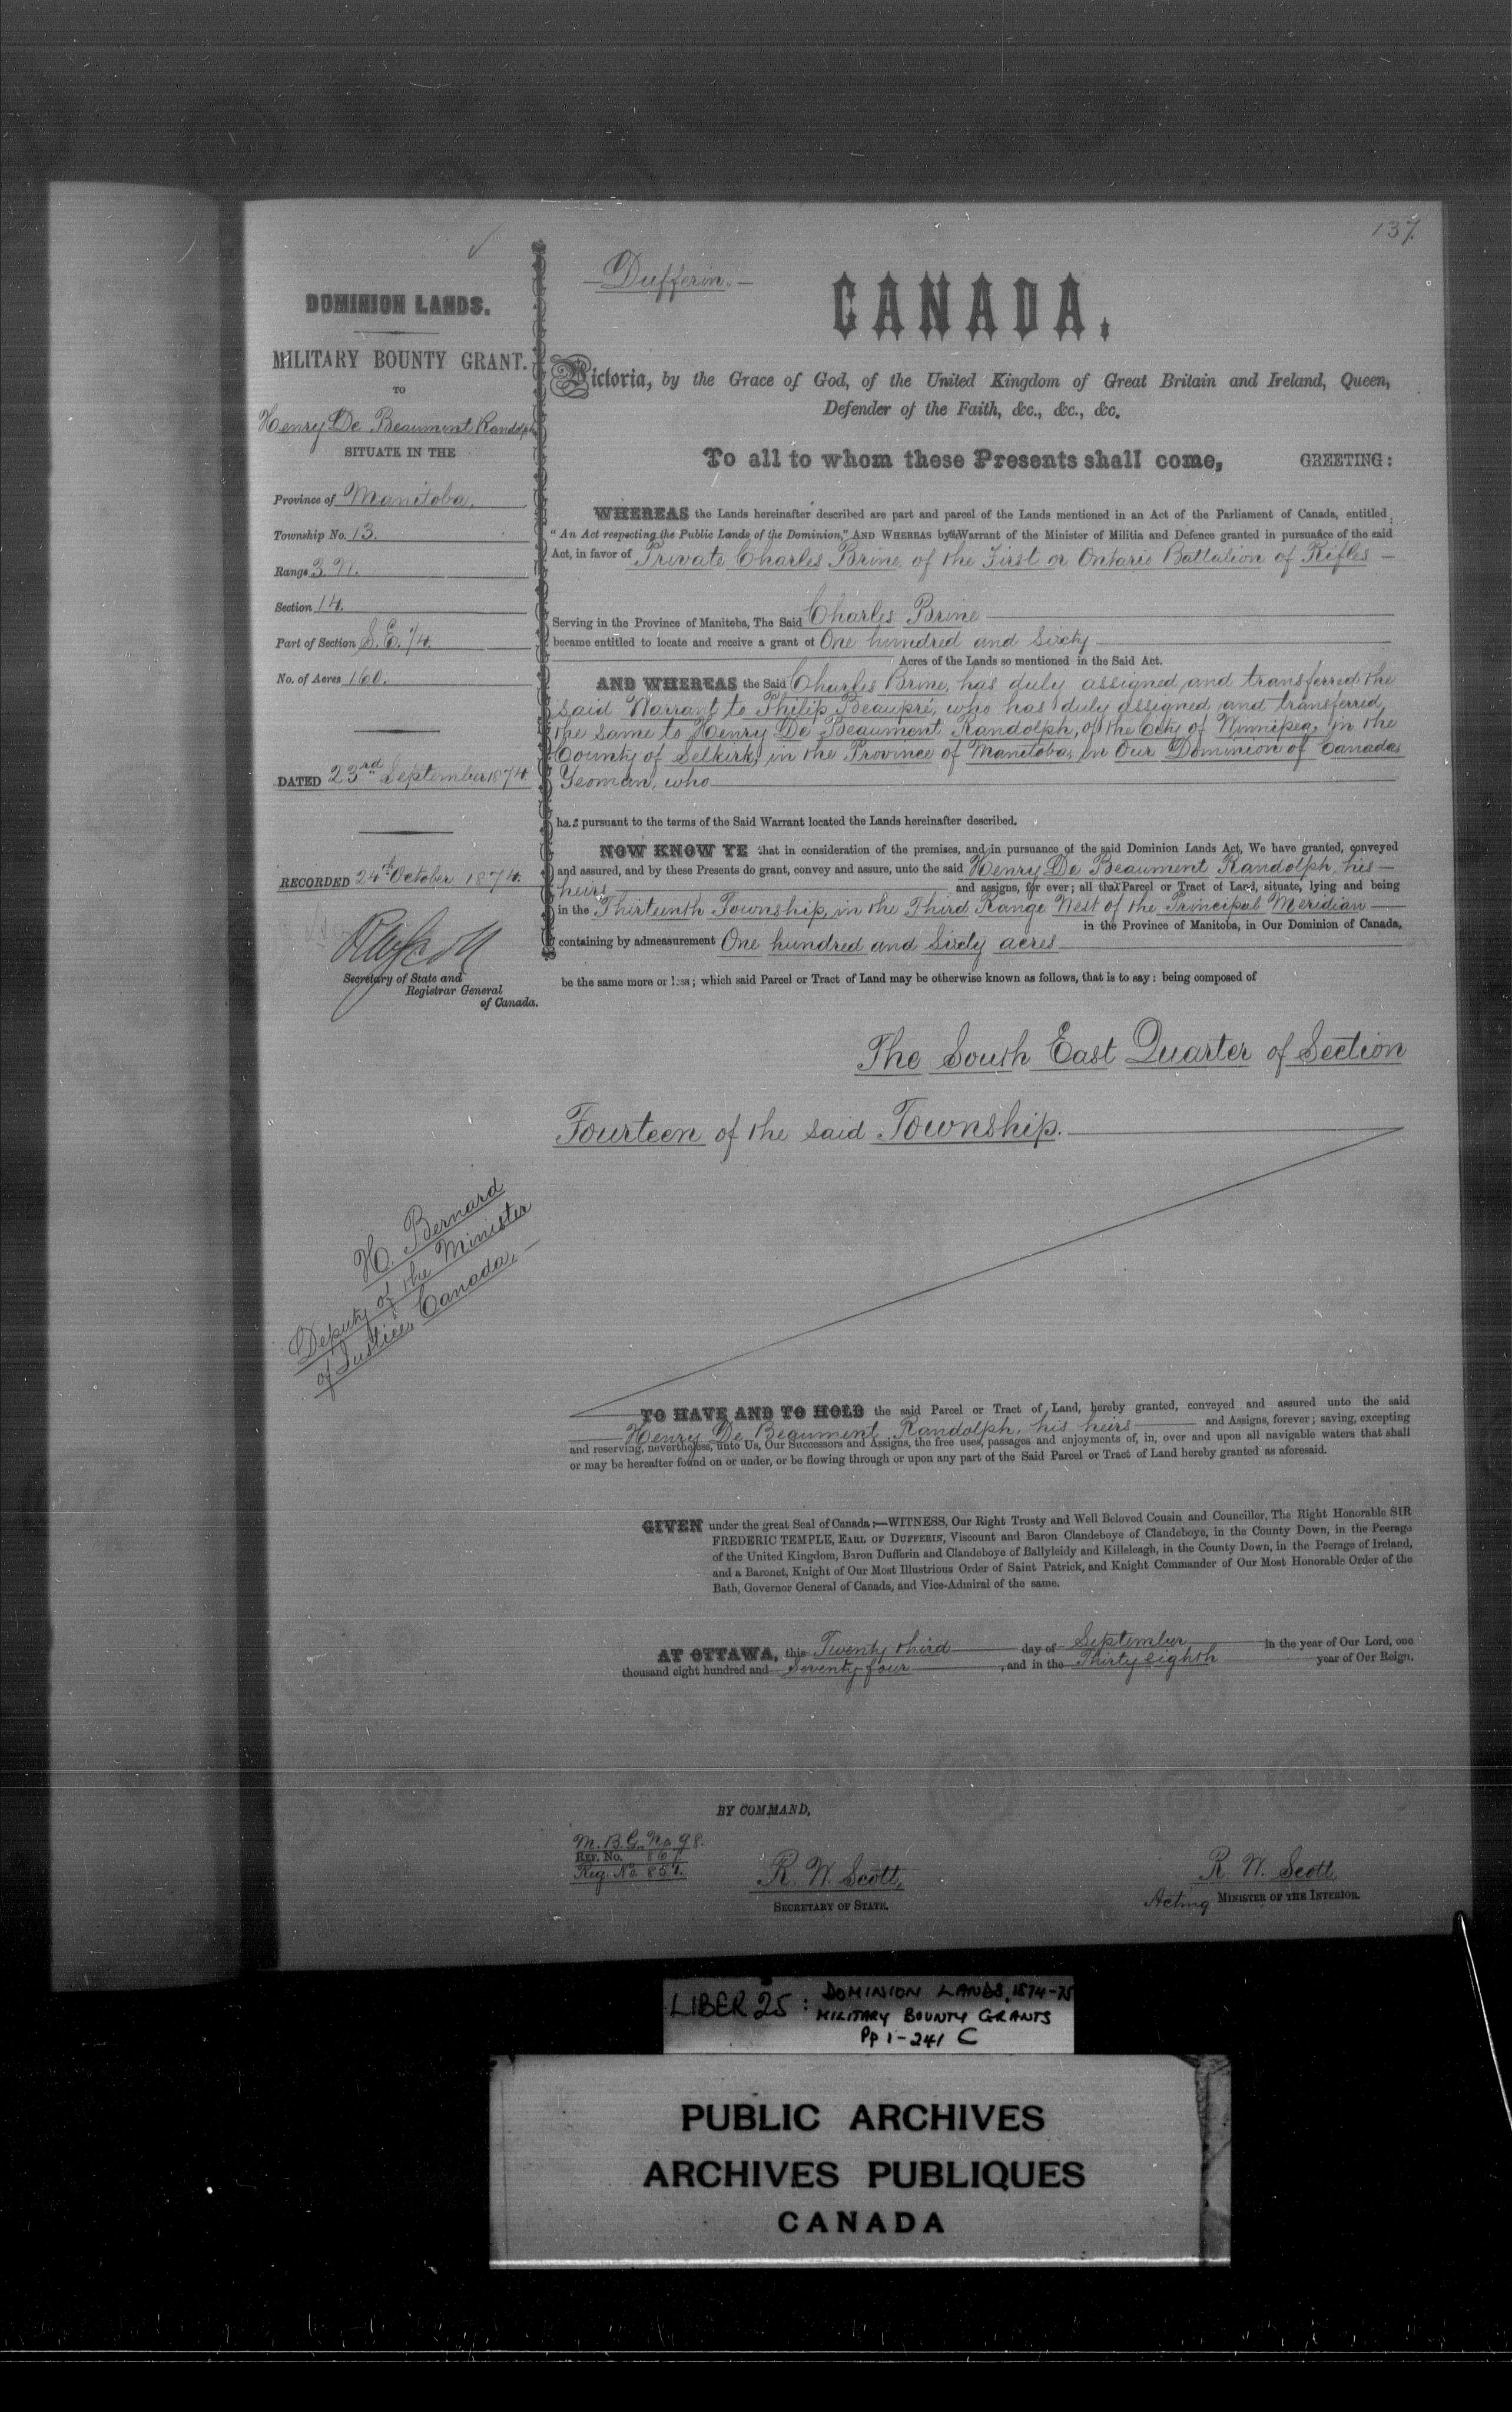 137.
DOMINION LANDS.
MILITARY BOUNTY GRANT.
TO
Henry De Beaumont Randolph
SITUATE IN THE
Province of Manitoba.
Township No. 13.
Range 3. W.
Section 14.
Part of Section S. E. 1/4.
No. of Acres 160.
DATED 23rd September 1874
RECORDED 24th October 1874.
RWScott
Secretary of State and
Registrar General
of Canada.
H. Bernard
Deputy of the Minister
of Justice, Canada.
Dufferin.
CANADA.
Victoria, by the Grace of God, of the United Kingdom of Great Britain and Ireland, Queen,
Defender of the Faith, &c., &c., &c.
To all to whom these Presents shall come, GREETING:
WHEREAS the Lands hereinafter described are part and parcel of the Lands mentioned in an Act of the Parliament of Canada, entitled
"An Act respecting the Public Lands of the Dominion," AND WHEREAS by the Warrant of the Minister of Militia and Defence granted in pursuance of the said
Act, in favor of Private Charles Brine, of the First or Ontario Battalion of Rifles
Serving in the Province of Manitoba, The Said Charles Brine
became entitled to locate and receive a grant of One hundred and Sixty
Acres of the Lands so mentioned in the Said Act.
AND WHEREAS the Said Charles Brine, has duly assigned and transferred the
said Warrant to Philip Beaupré, who has duly assigned and transferred
the same to Henry De Beaumont Randolph, of the City of Winnipeg, in the
County of Selkirk, in the Province of Manitoba, in Our Dominion of Canada
Yeoman, who
has pursuant to the terms of the Said Warrant located the Lands hereinafter described.
NOW KNOW YE that in consideration of the premises, and in pursuance of the said Dominion Lands Act, We have granted, conveyed
and assured, and by these Presents do grant, convey and assure, unto the said Henry De Beaumont Randolph, his
heirs and assigns, for ever; all that Parcel or Tract of Land, situate, lying and being
in the Thirteenth Township, in the Third Range West of the Principal Meridian
in the Province of Manitoba, in Our Dominion of Canada,
containing by admeasurement One hundred and Sixty acres
be the same more or less; which said Parcel or Tract of Land may be otherwise known as follows, that is to say: being composed of
The South East Quarter of Section
Fourteen of the said Township.
TO HAVE AND TO HOLD the said Parcel or Tract of Land, hereby granted, conveyed and assured unto the said
Henry De Beaumont Randolph, his heirs and Assigns, forever; saving, excepting
and reserving, nevertheless, unto Us, Our Successors and Assigns, the free uses, passages and enjoyments of, in, over and upon all navigable waters that shall
or may be hereafter found on or under, or be flowing through or upon any part of the Said Parcel or Tract of Land hereby granted as aforesaid.
GIVEN under the great Seal of Canada:—WITNESS, Our Right Trusty and Well Beloved Cousin and Councillor, The Right Honorable SIR
FREDERIC TEMPLE, EARL OF DUFFERIN, Viscount and Baron Clandeboye of Clandeboye, in the County Down, in the Peerage
of the United Kingdom, Baron Dufferin and Clandeboye of Ballyleidy and Killeleagh, in the County Down, in the Peerage of Ireland,
and a Baronet, Knight of Our Most Illustrious Order of Saint Patrick, and Knight Commander of Our Most Honorable Order of the
Bath, Governor General of Canada, and Vice-Admiral of the same.
AT OTTAWA, this Twenty third day of September in the year of Our Lord, one
thousand eight hundred and Seventy four, and in the Thirty eighth year of Our Reign.
BY COMMAND,
M. B. G. No. 98.
REF. No. 861
Reg. No. 851.
R. W. Scott,
SECRETARY OF STATE.
R. W. Scott,
Acting MINISTER OF THE INTERIOR.
LIBER 25: DOMINION LANDS, 1874-75
MILITARY BOUNTY GRANTS
Pp 1-241 C
PUBLIC ARCHIVES
ARCHIVES PUBLIQUES
CANADA